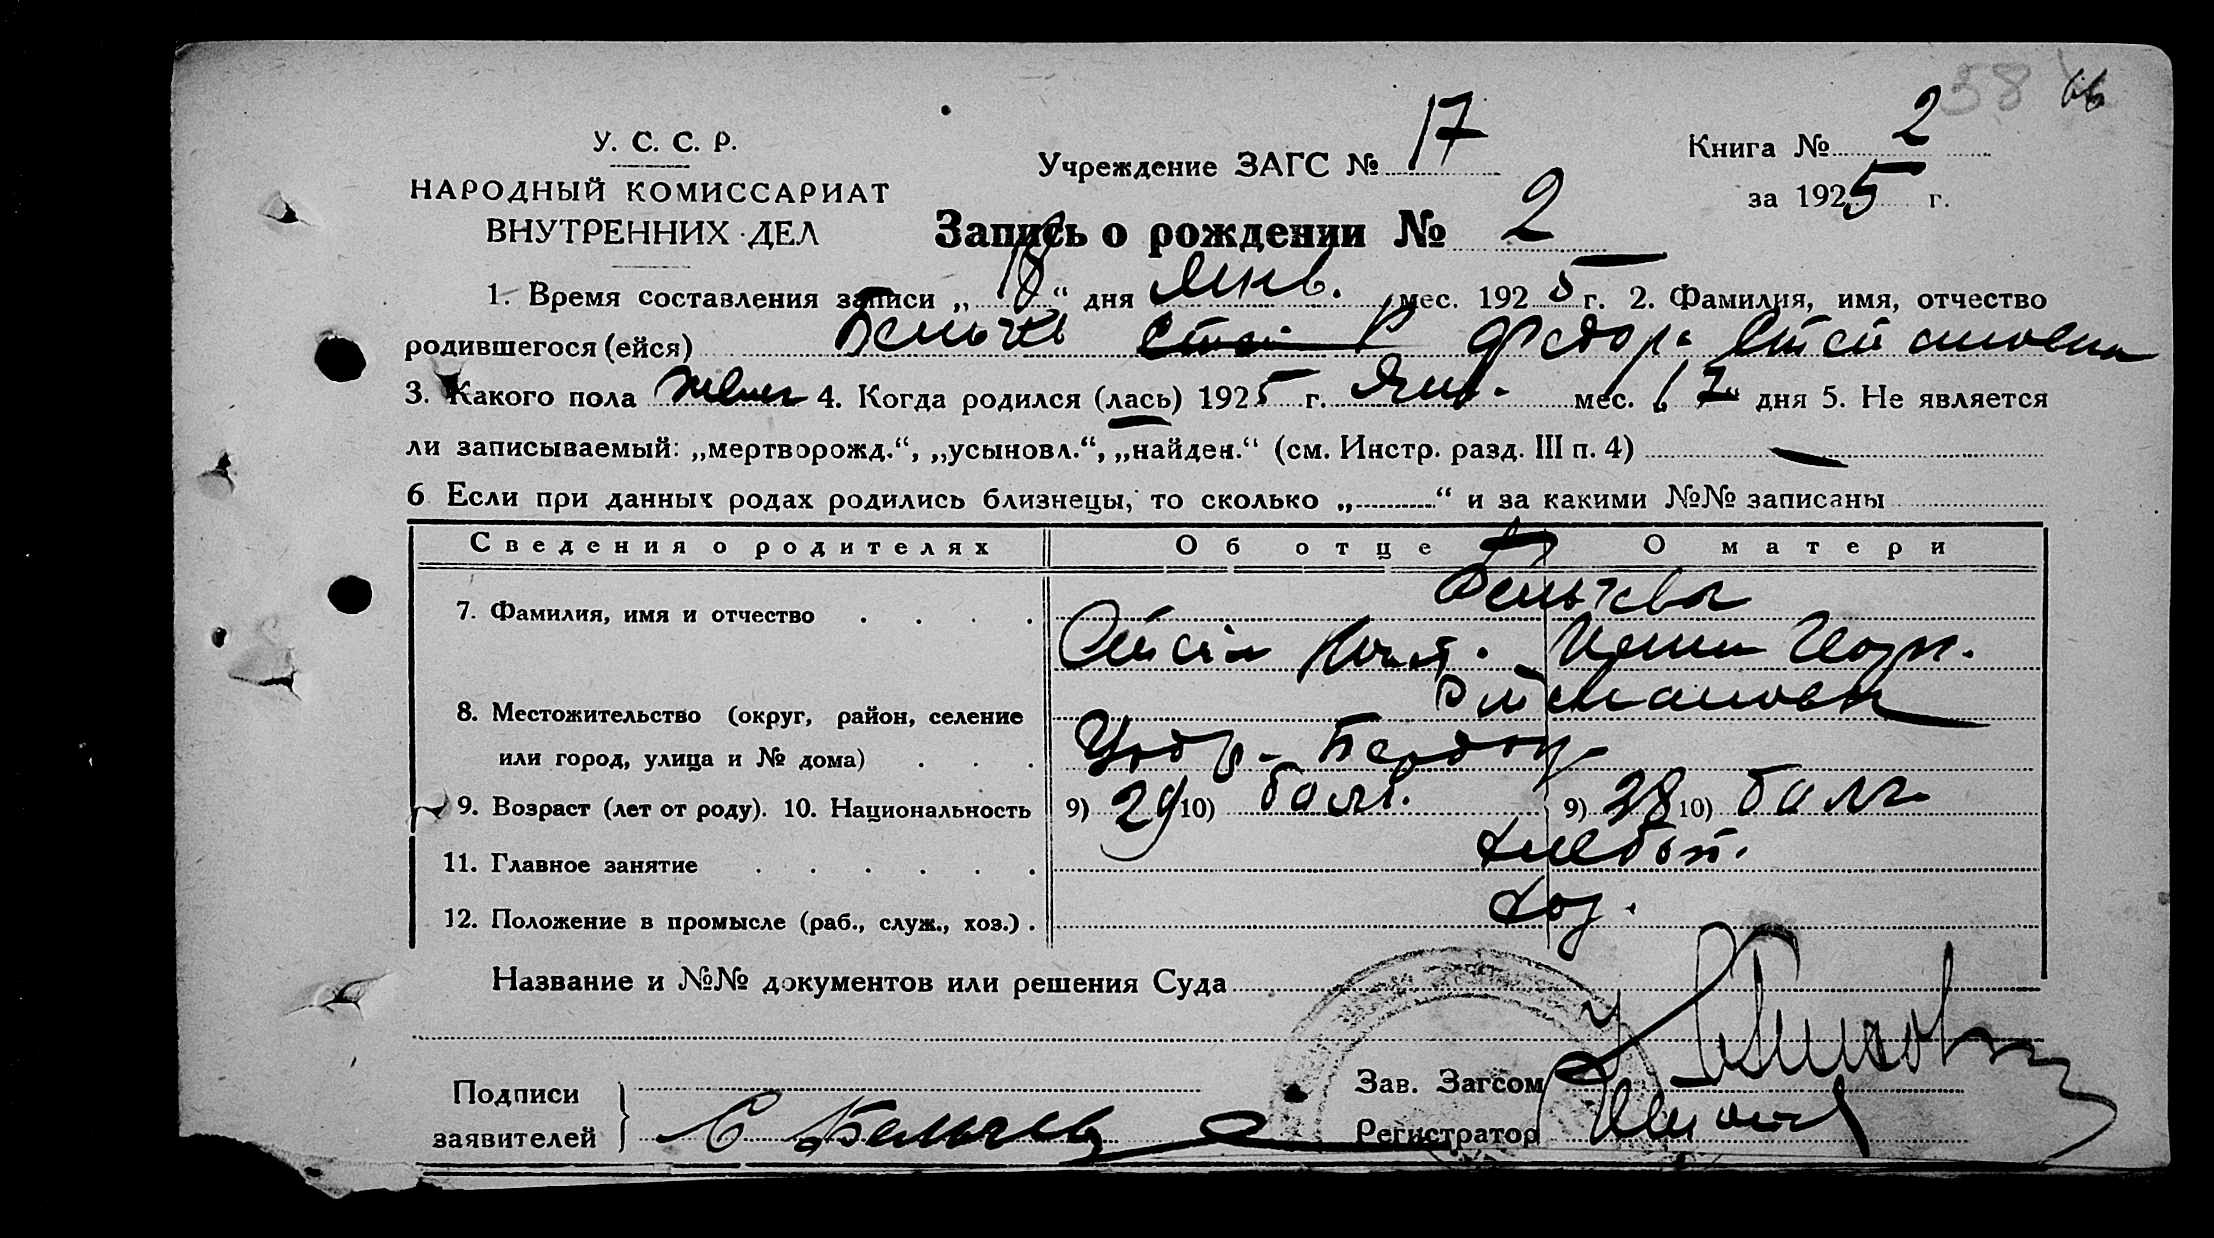 58 66
У. С. С. Р.
НАРОДНЫЙ КОМИССАРИАТ
ВНУТРЕННИХ ДЕЛ
Учреждение ЗАГС № 17
Книга № 2
за 1925 г.
Запись о рождении № 2
1. Время составления записи „18“ дня Янв. мес. 1925 г. 2. Фамилия, имя, отчество
родившегося (ейся) Бельчев Федора
3. Какого пола 4. Когда родился (лась) 1925 г. Янв. мес. „17“ дня 5. Не является
ли записываемый: „мертворожд.“, „усыновл.“, „найден.“ (см. Инстр. разд. III п. 4) —
6 Если при данных родах родились близнецы, то сколько „ “ и за какими №№ записаны
Сведения о родителях Об отце О матери
7. Фамилия, имя и отчество Бельчевы
8. Местожительство (округ, район, селение
или город, улица и № дома)
9. Возраст (лет от роду). 10. Национальность 9) 29 10) болг. 9) 28 10) болг.
11. Главное занятие хлебоп.
12. Положение в промысле (раб., служ., хоз.) хоз.
Название и №№ документов или решения Суда
Подписи
заявителей С Бельчев
Зав. Загсом
Регистратор